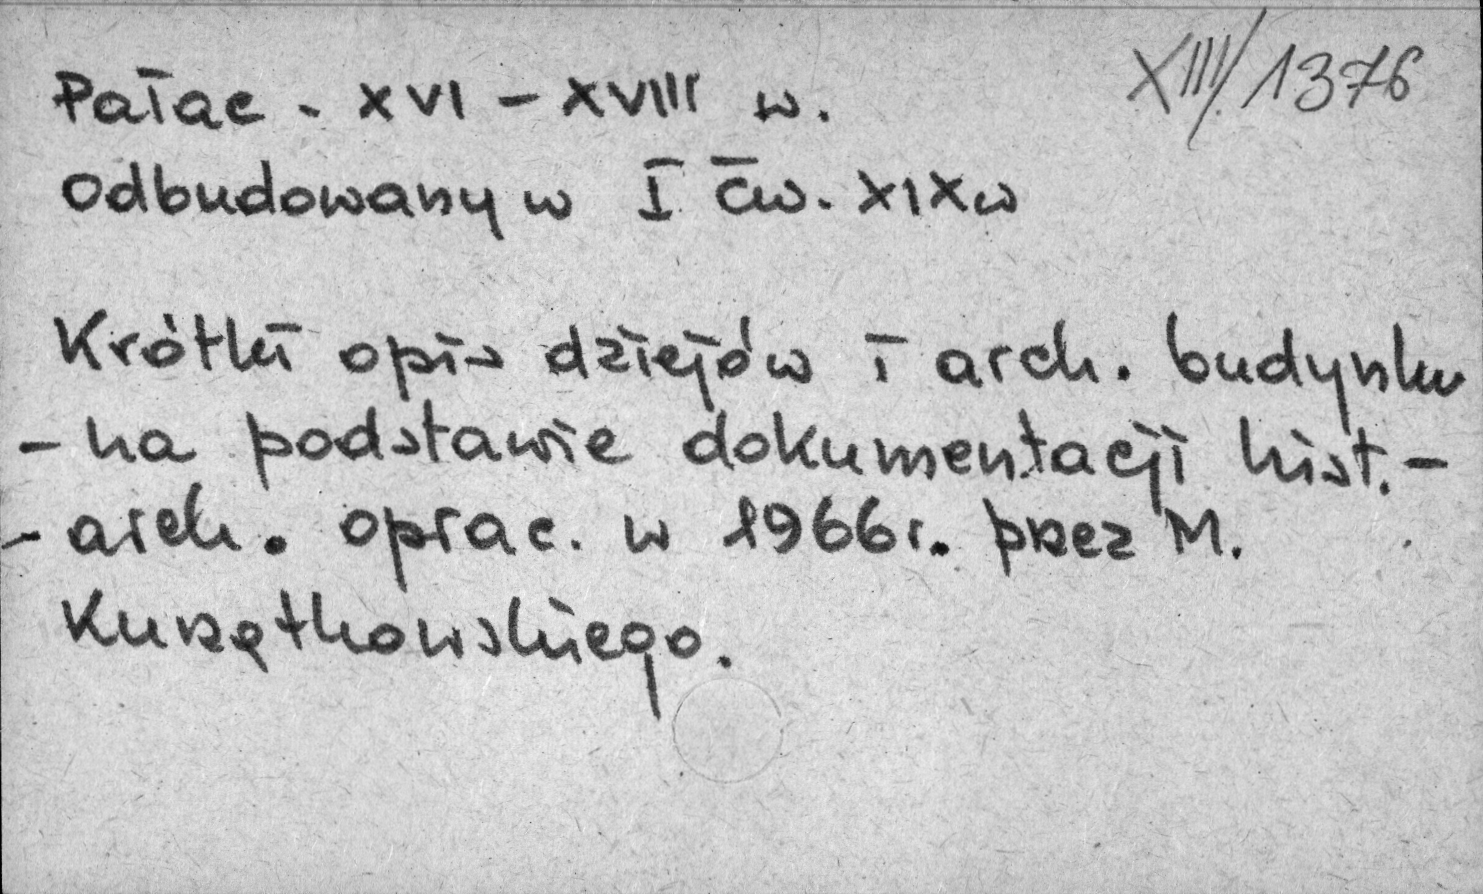 XIII/1376
Pałac - XVI - XVIII w.
Odbudowany w I ćw. XIXw
Krótki opis dziejów i arch. budynku
- na podstawie dokumentacji hist.-
- arch. oprac. w 1966r. przez M.
Kurzątkowskiego.